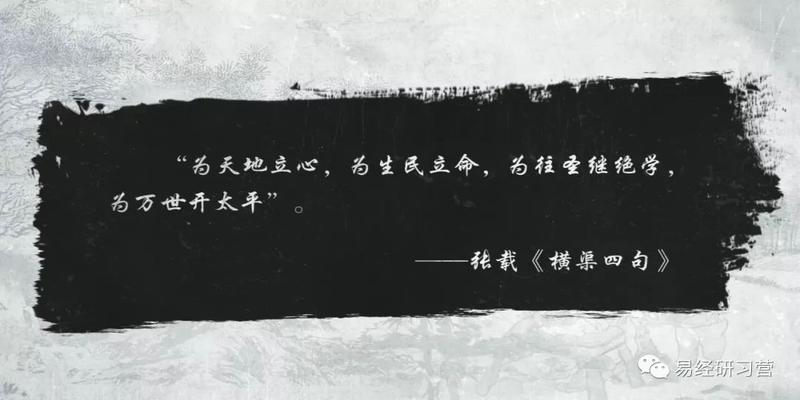 “为天地立心，为生民立命，为往圣继绝学，
为万世开太平”。
——张载《横渠四句》
易经研习营